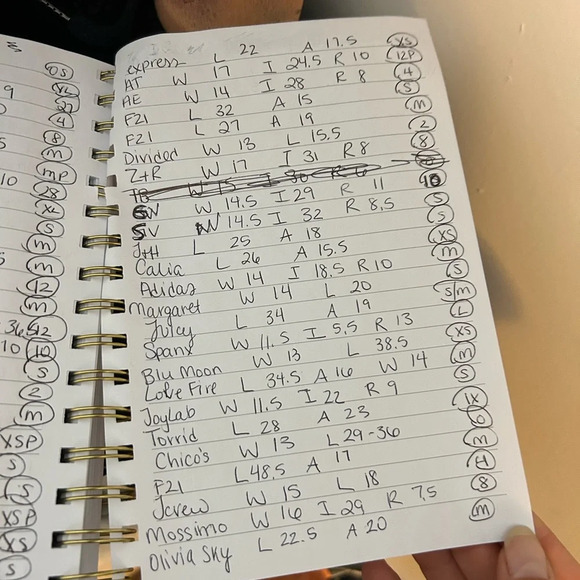 OS
9 XL
27
4
8
M
MP
10 28
XL
S
M
M
12
M
12
10 10
S
2
M
XSP
S
XSP
XS
S
Express L 22 A 17.5 XS
AT W 17 I 24.5 R 10 12P
AE W 14 I 28 R 8 4
F21 L 32 A 15 S
F21 L 27 A 19 M
Divided W 13 L 15.5 2
Z+R W 17 I 31 R 8 8
TB W 15 I 30 R 6
W 14.5 I 29 R 11 10
SV W 14.5 I 32 R 8.5 S
J+H L 25 A 18 S
Calia L 26 A 15.5 XS
Adidas W 14 I 18.5 R10 M
Margaret W 14 L 20 S
Juicy L 34 A 19 S/M
Spanx W 11.5 I 5.5 R 13 L
Blu Moon W 13 L 38.5 XS
Love Fire L 34.5 A 16 W 14 M
JoyLab W 11.5 I 22 R 9 S
Torrid L 28 A 23 1X
Chico's W 13 L 29-36 0
F21 L48.5 A 17 M
Jcrew W 15 L 18 4
Mossimo W 16 I 29 R 7.5 8
Olivia Sky L 22.5 A 20 M